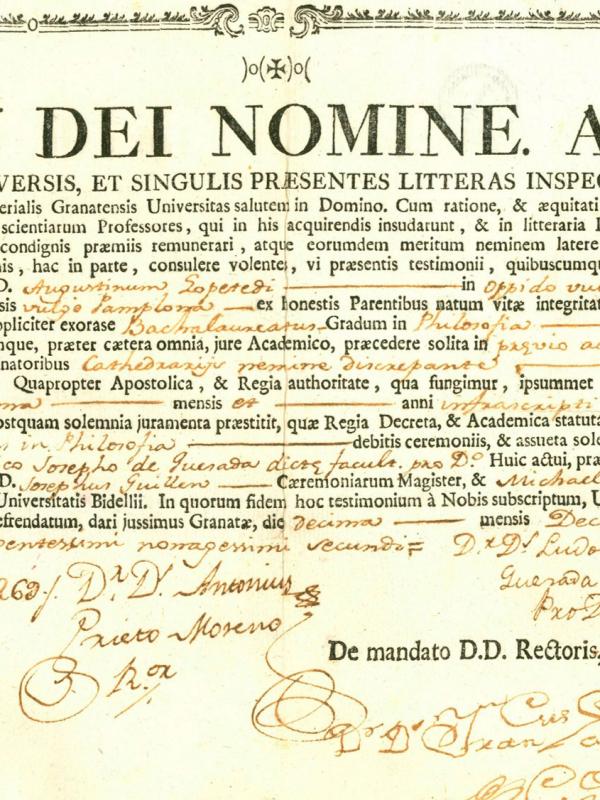 )o(✠)o(
DEI NOMINE. A
VERSIS, ET SINGULIS PRÆSENTES LITTERAS INSPEC
erialis Granatensis Universitas salutem in Domino. Cum ratione, & æquitati
scientiarum Professores, qui in his acquirendis insudarunt, & in litteraria
condignis præmiis remunerari, atque eorumdem meritum neminem latere
is, hac in parte, consulere volentes, vi præsentis testimonii, quibuscumqu
D. Augustinum Loperedi in oppido vu
sis vulgo Pamplona ex honestis Parentibus natum vitæ integritat
ppliciter exorase Bachalaureatus Gradum in Philosofia
nque, præter cætera omnia, jure Academico, præcedere solita in prævio
natoribus Cathedrarijs nemine discrepante
Quapropter Apostolica, & Regia authoritate, qua fungimur, ipsummet
ma mensis et anni infrascripti
ostquam solemnia juramenta præstitit, quæ Regia Decreta, & Academica statuta
s in Philosofia debitis ceremoniis, & assueta sole
co Josepho de Guerada dictę facult. pro D.º Huic actui, præ
D. Josephus Guillen Cæremoniarum Magister, & Michael
Universitatis Bidelli. In quorum fidem hoc testimonium à Nobis subscriptum, U
efrendatum, dari jussimus Granatæ, die Decima mensis Dec
nonagessimi secundi= D.r D.s Ludo
D.r D.s Antonius
Guerada
Prieto Moreno
Pro D
R.or
De mandato D.D. Rectoris,